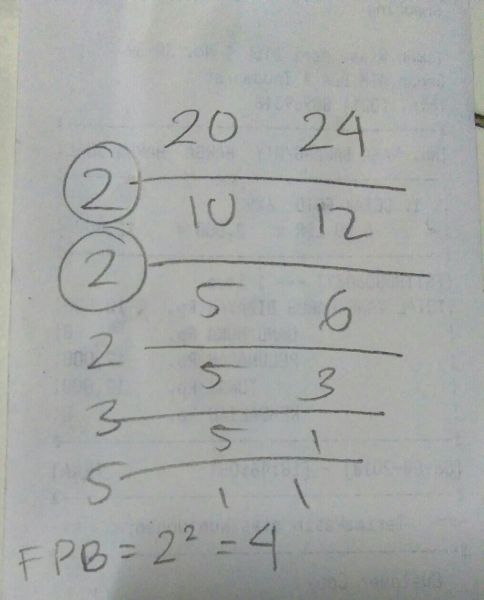 20 24
2 10 12
2 5 6
2 5 3
3 5 1
5 1 1
FPB = 2² = 4